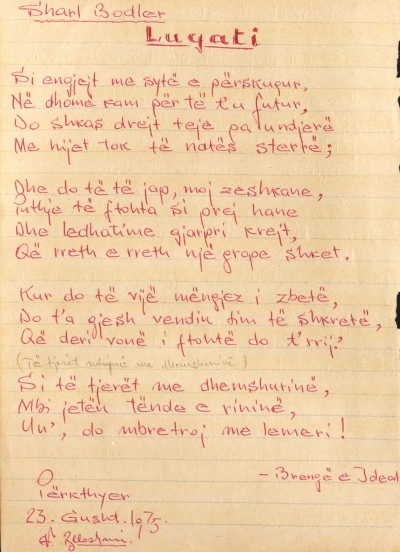 Sharl Bodler
Lugati
Si engjejt me sytë e përskuqur,
Në dhomë kam për të t'u futur,
Do shkas drejt teje pa undjerë
Me hijet tok të natës sterrë;
Dhe do të të jap, moj zeshkane,
Puthje të ftohta si prej hane
Dhe ledhatime gjarpri krejt,
Që rreth e rreth një grope shket.
Kur do të vijë mëngjez i zbetë,
Do t'a gjesh vendin tim të shkretë,
Që deri vonë i ftohtë do t'rrij?
(Të tjerët me dhemshurinë)
Si të tjerët me dhemshurinë,
Mbi jetën tënde e rininë,
Un', do mbretroj me lemeri!
- Brengë e Ideal
Përkthyer
23. Gusht. 1975.